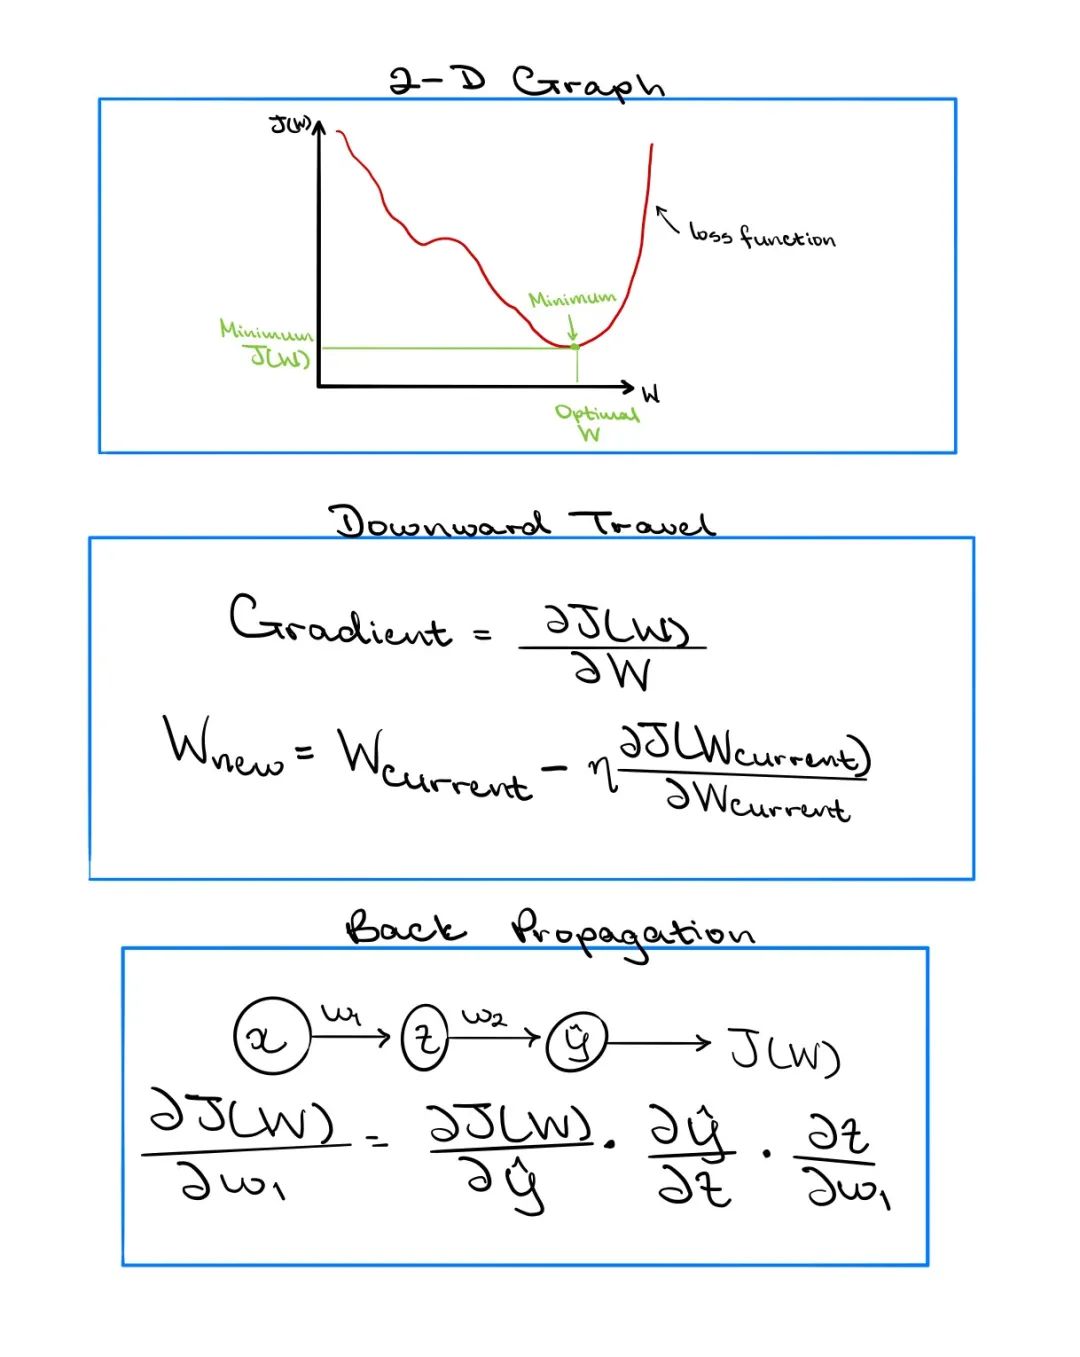 2-D Graph
J(W)
loss function
Minimum
Minimum
J(W)
W
Optimal
W
Downward Travel
Gradient = ∂J(W)/∂W
Wnew = Wcurrent - η ∂J(Wcurrent)/∂Wcurrent
Back Propagation
x w1 z w2 ŷ J(W)
∂J(W)/∂w1 = ∂J(W)/∂ŷ · ∂ŷ/∂z · ∂z/∂w1